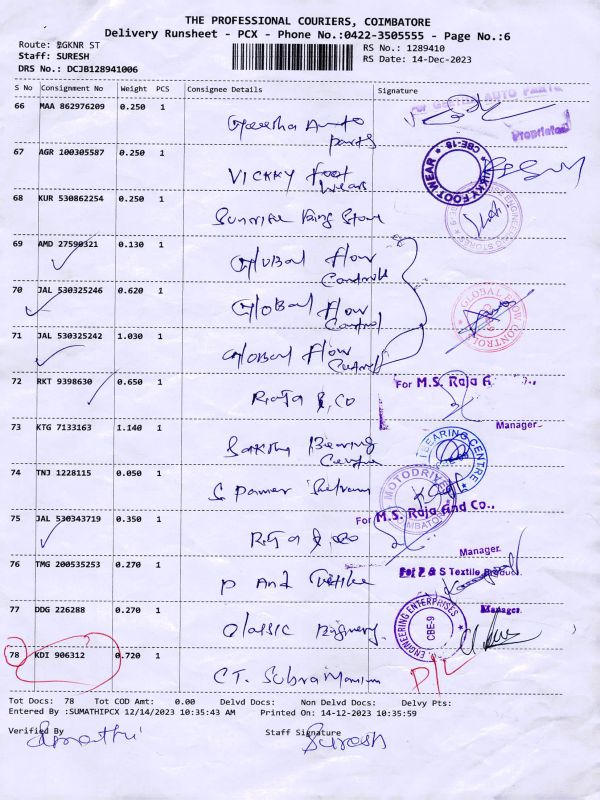 THE PROFESSIONAL COURIERS, COIMBATORE
Delivery Runsheet - PCX - Phone No.:0422-3505555 - Page No.:6
Route: ST
Staff: SURESH
DRS No.: DCJB128941006
RS No.: 1289410
RS Date: 14-Dec-2023
S No Consignment No Weight PCS Consignee Details Signature
66 MAA 862976209 0.250 1
Auto parts
Proprietor
67 AGR 100305587 0.250 1
VICKKY foot wear
VIKKY FOOT WEAR * CBE-18 *
68 KUR 530862254 0.250 1
Sunrise Ring Store
69 AMD 27590321 0.130 1
Global Flow Controll
70 JAL 530325246 0.620 1
Global Flow Control
GLOBAL FLOW CONTROL
71 JAL 530325242 1.030 1
Global Flow Controll
72 RKT 9398630 0.650 1
Raja & Co
For M.S. Raja
Manager
73 KTG 7133163 1.140 1
Sakthi Bearing Centre
BEARING CENTRE
74 TNJ 1228115 0.050 1
MOTODRIVE
COIMBATORE
75 JAL 530343719 0.350 1
Raja & co
For M.S. Raja And Co.,
Manager
76 TMG 200535253 0.270 1
P And Textile
For P & S Textile Product.
Manager
77 DDG 226288 0.270 1
Classic Enginery
ENGINEERING ENTERPRISES CBE-9
78 KDI 906312 0.720 1
CT. Subramanium
D/L
Tot Docs: 78 Tot COD Amt: 0.00 Delvd Docs: Non Delvd Docs: Delvy Pts:
Entered By :SUMATHIPCX 12/14/2023 10:35:43 AM Printed On: 14-12-2023 10:35:59
Verified By Staff Signature
Sumathi Suresh